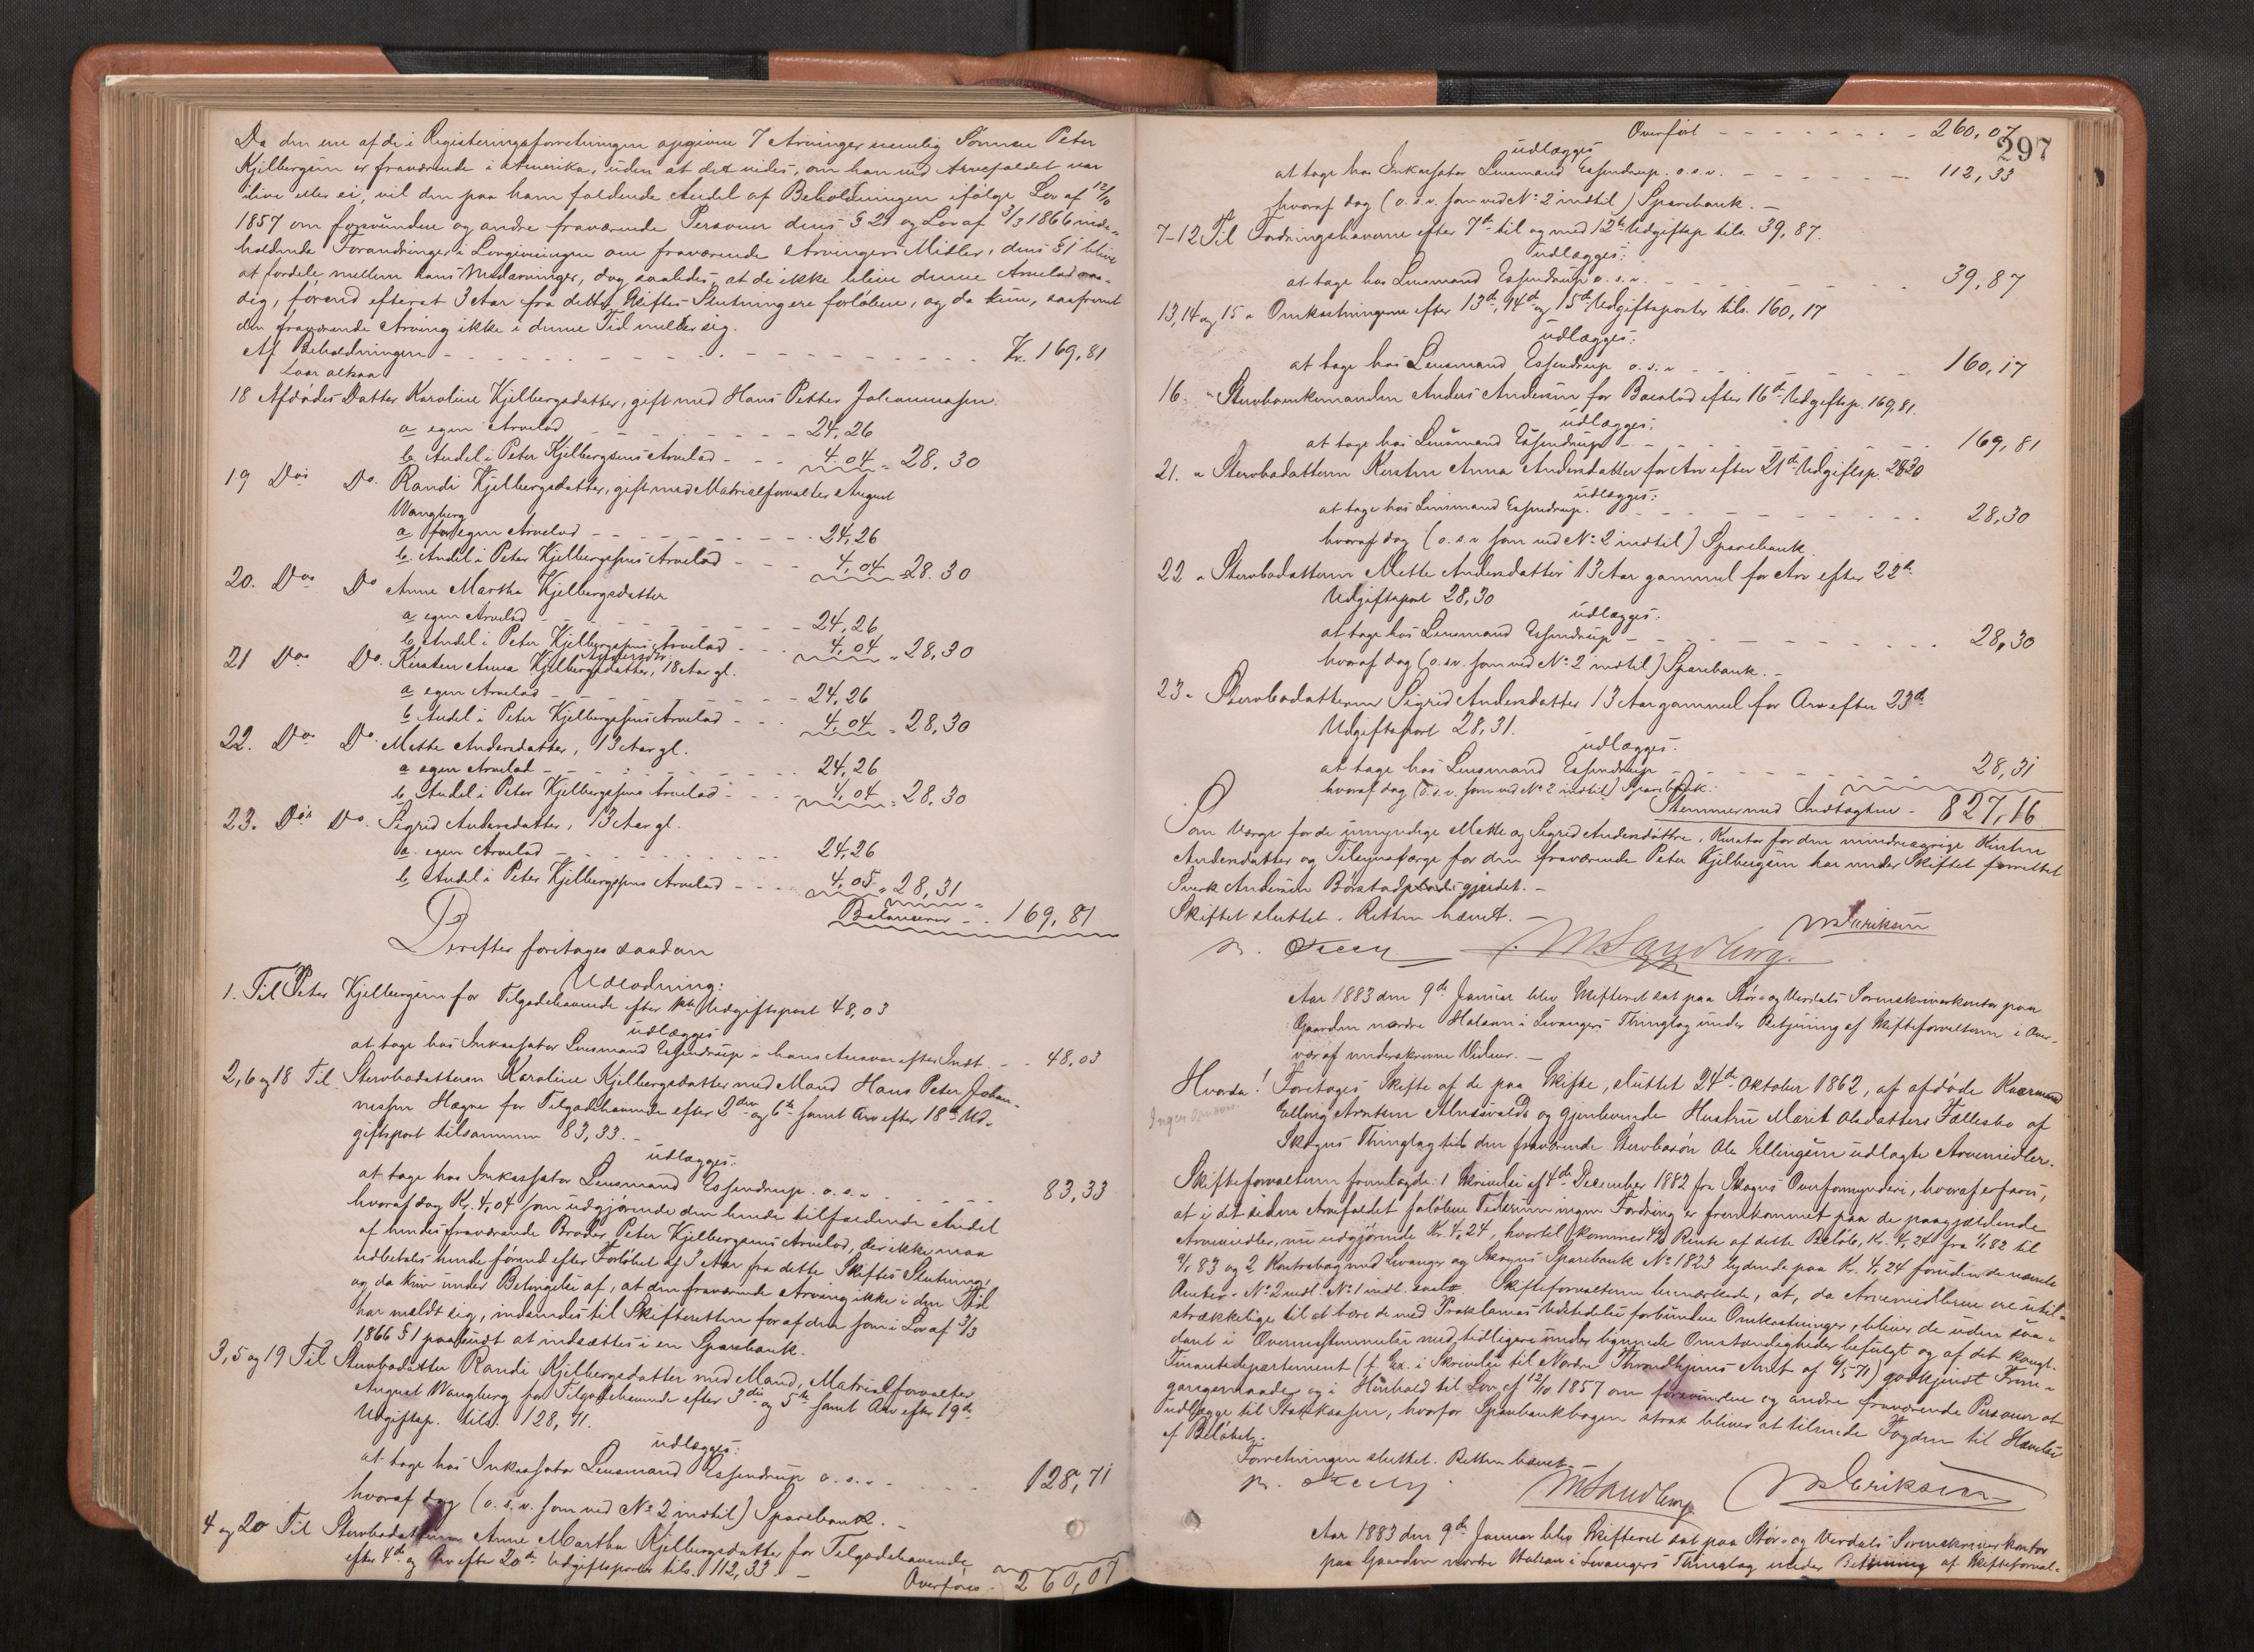 Da den ene af de i Registeringsforretningen opgivne 7 Arvinger nemlig Sønnen Peter
Kjelbergsen er fraværende i Amerika, uden at det vides, om han ved Arvefaldet var
ilive eller ei, vil den paa ham faldende Andel af Beholdningen ifølge Lov af 12/10
1857 om forsvundne og andre fraværende Personer dens § 21 og Lov af 3/3 1866 inde-
holdende Forandringer i Lovgivningen om fraværende Arvingers Midler, dens § 1 blive
at fordele mellem hans Medarvinger, dog saaledes, at de ikke bliver denne Arvelod raa-
dig, førend efterat 3 Aar fra dette Skiftes Slutning ere forløbne, og da kun, saafremt
den fraværende Arving ikke i denne Tid melder sig.
Af Beholdningen - - - Kr. 169,81
Loar altsaa
18 Afdødes Datter Karoline Kjelbergsdatter, gift med Hans Petter Johannesen
a egen Arvelod - - - 24,26
b. Andel i Peter Kjelbergsens Arvelod - - - 4,04 = 28.30
19 Dos Do. Randi Kjelbergsdatter, gift med Matrialforvalter August
Wangberg
a for egen Arvelod - - - 24,26
b. Andel i Peter Kjelbergsens Arvelod - - - 4,04 = 28.30
20. Dos Do Anne Martha Kjelbergsdatter
a egen Arvelod - - - 24,26
b. Andel i Peter Kjelbergsens Arvelod - - - 4,04 = 28,30
21 Dos Do. Kirsten Anna Kjelbergsdatter, 18 Aar gl.
Andersdr.
a egen Arvelod - - - 24,26
b Andel i Peter Kjelbergsens Arvelod - - - 4,04 = 28,30
22. Dos Do. Mette Andersdatter, 13 Aar gl.
a egen Arvelod - - - 24,26
b. Andel i Peter Kjelbergsens Arvelod - - - 4,04 = 28,30
23. Dos Do. Sigrid Andersdatter, 13 Aar gl.
a. egen Arvelod - - - 24,26
b. Andel i Peter Kjelbergsens Arvelod - - - 4,05 = 28,31
Balancerer - - 169,81
Derefter foretages saadan
Udlodning:
1. Til Peter Kjelbergsen for Tilgodehavende efter 1ste Udgiftspost 48,03
udlægges
at tage hos Inkassator Lensmand Essendrup i hans Ansvar efter Indt. - - 48,03
2, 6 og 18 Til Stervbodatteren Karoline Kjelbergsdatter med Mand Hans Peter Johan-
nessen Hægne for Tilgodehavende efter 2den og 6te samt Arv efter 18de Ud-
giftspost tilsammen 83,33. -
udlægges:
at tage hos Inkassator Lensmand Essendrup o. s. v. - - - 83,33
hvoraf dog Kr. 4,04 som udgjørende den hende tilfaldende Andel
af hendes fraværende Broder Peter Kjelbergsens Arvelod, der ikke maa
udbetales hende førend efter Forløbet af 3 Aar fra dette Skiftes Slutning,
og da kun under Betingelse af, at den fraværende Arving ikke i den Tid
har meldt sig, indsendes til Skifteretten for af den som i Lov af 3/3
1866 § 1 paabudt at indsættes i en Sparebank.
3, 5 og 19 Til Stervbodatter Randi Kjelbergsdatter med Mand, Matrialforvalter
August Wangberg for Tilgodehavende efter 3die og 5te samt Arv efter 19de
Udgiftsp. tils. 128,71.
udlægges:
at tage hos Inkassator Lensmand Essendrup o. s. v. - - - 128,71
hvoraf dog (o. s. v. som ved No 2 indtil) Sparebank. -
4 og 20 Til Stervbodatteren Anne Martha Kjelbergsdatter for Tilgodehavende
efter 4de og Arv efter 20de Udgiftsposter tils. 112,33. -
Overføres - 260,07
297
Overført - - - 260,07
udlægges
at tage hos Inkassator Lensmand Essendrup o. s. v. - - - 112,33
hvoraf dog (o. s. v. som ved No 2 indtil) Sparebank. -
7-12 Til Fordringshaverne efter 7de til og med 12te Udgiftsp tils. 39,87.
udlægges:
at tage hos Lensmand Essendrup o. s. v. - - - 39,87
13, 14 og 15 " Omkostningerne efter 13de, 14de og 15de Udgiftsposter tils. 160,17
udlægges:
at tage hos Lensmand Essendrup o. s. v. - - - 160,17
16. " Stervboenkemanden Anders Andersen for Boeslod efter 16de Udgiftsp. 169,81.
udlægges:
at tage hos Lensmand Essendrup - - - 169,81
21. " Stervbodatteren Kirsten Anna Andersdatter for Arv efter 21de Udgiftsp. 28,30
udlægges:
at tage hos Lensmand Essendrup. - - - 28,30
hvoraf dog (o. s. v. som ved No 2 indtil) Sparebank.
22 " Stervbodatteren Mette Andersdatter 13 Aar gammel for Arv efter 22de
Udgiftspost 28,30
udlægges:
at tage hos Lensmand Essendrup - - - 28,30
hvoraf dog (o. s. v. som ved No 2 indtil) Sparebank. -
23 " Stervbodatteren Sigrid Andersdatter 13 Aar gammel for Arv efter 23de
Udgiftspost 28,31.
udlægges.
at tage hos Lensmand Essendrup - - - 28,31
hvoraf dog (o. s. v. som ved No 2 indtil) Sparebank.
Stemmer med Indtægten - 827,16
Som Værge for de umyndige Mette og Sigrid Andersdøttre, Kurator for den mindreaarige Kirsten
Andersdatter og Tilsynsværge for den fraværende Peter Kjelbergsen har under Skiftet forrettet
Sverk Andersen Borstadpladsgjerdet. -
Skiftet sluttet. Retten hævet. -
M Sandberg. Eriksen
Aar 1883 den 9de Januar blev Skifteret sat paa Stør- og Verdals Sorenskriverkontor paa
Gaarden nordre Halsan i Levangers Thinglag under Betjening af Skifteforvalteren i Over-
vær af underskrevne Vidner. -
Hvorda! Foretages Skifte af de paa Skifte, sluttet 24de Oktober 1862, af afdøde Kaarmand
Elling Arntsen Almsvold og gjenlevende Hustru Marit Olsdatters Fællesbo af
Skogns Thinglag til den fraværende Stervbosøn Ole Ellingsen udlagte Arvemidler.
Skifteforvalteren fremlagde: 1 Skrivelse af 4de December 1882 fra Skogns Overformynderi, hvoraf erfares,
at i det siden Arvefaldet forløbne Tidsrum ingen Fordring er fremkommet paa de paagjældende
Arvemidler, nu udgjørende Kr. 4,24, hvortil kommer 4% Rente af dette Beløb, Kr. 4,24 fra 1/1 82 til
9/1 83 og 2 Kontrabog med Levanger og Skogns Sparebank No 1823 lydende paa Kr. 4,24 foruden de nævnte
Renter. No 2 indl. No 1 indt. saal. Skifteforvalteren bemærkede, at, da Arvemidlerne ere util-
strækkelige til at bære de med Proklamas Udstedelse forbundne Omkostninger, bliver de uden saa-
dant i Overensstemmelse med tidligere under lignende Omstændigheder befulgt og af det kongl.
Finantsdepartement (f. Ex. i Skrivelse til Nordre Throndhjems Amt af 6/5 71) godkjendt Frem-
gangsmaade og i Henhold til Lov af 12/10 1857 om forsvundne og andre fraværende Personer at
udlægge til Statskassen, hvorfor Sparebankbogen strax bliver at tilsende Fogden til Hævelse
af Beløbet.
Forretningen sluttet. Retten hævet. -
M Sandberg. Eriksen
Aar 1883 den 9de Januar blev Skifteret sat paa Stør- og Verdals Sorenskriverkontor
paa Gaarden nordre Halsan i Levangers Thinglag under Betjening af Skifteforval-